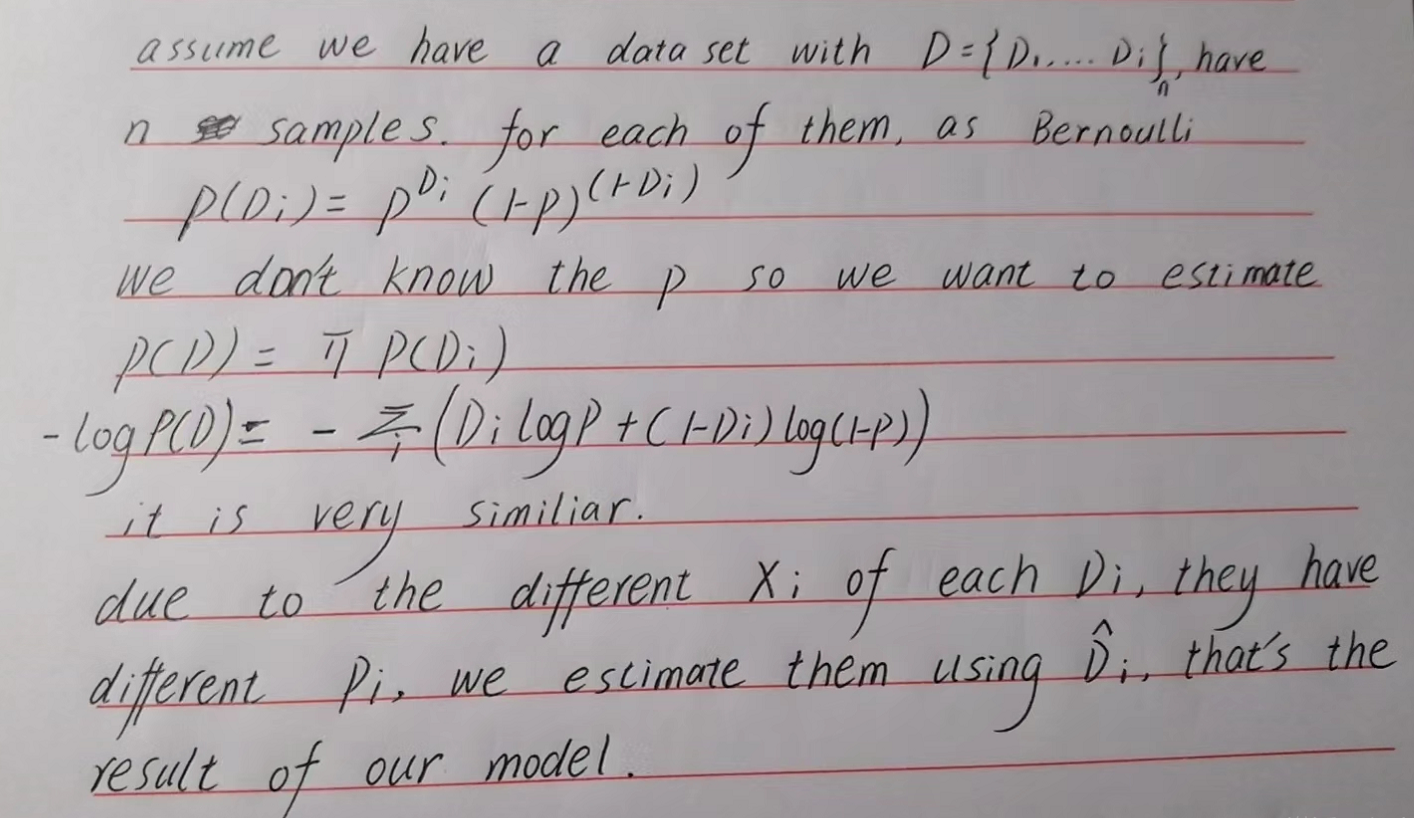 assume we have a data set with D={D₁,.... Dᵢ}ₙ, have
n samples. for each of them, as Bernoulli
P(Dᵢ)= p^Dᵢ (1-p)^(1-Dᵢ)
we don't know the p so we want to estimate
P(D) = π P(Dᵢ)
-log P(D) = - Σᵢ (Dᵢ log P + (1-Dᵢ) log(1-P))
it is very similiar.
due to the different Xᵢ of each Dᵢ, they have
different Pᵢ, we estimate them using D̂ᵢ, that's the
result of our model.